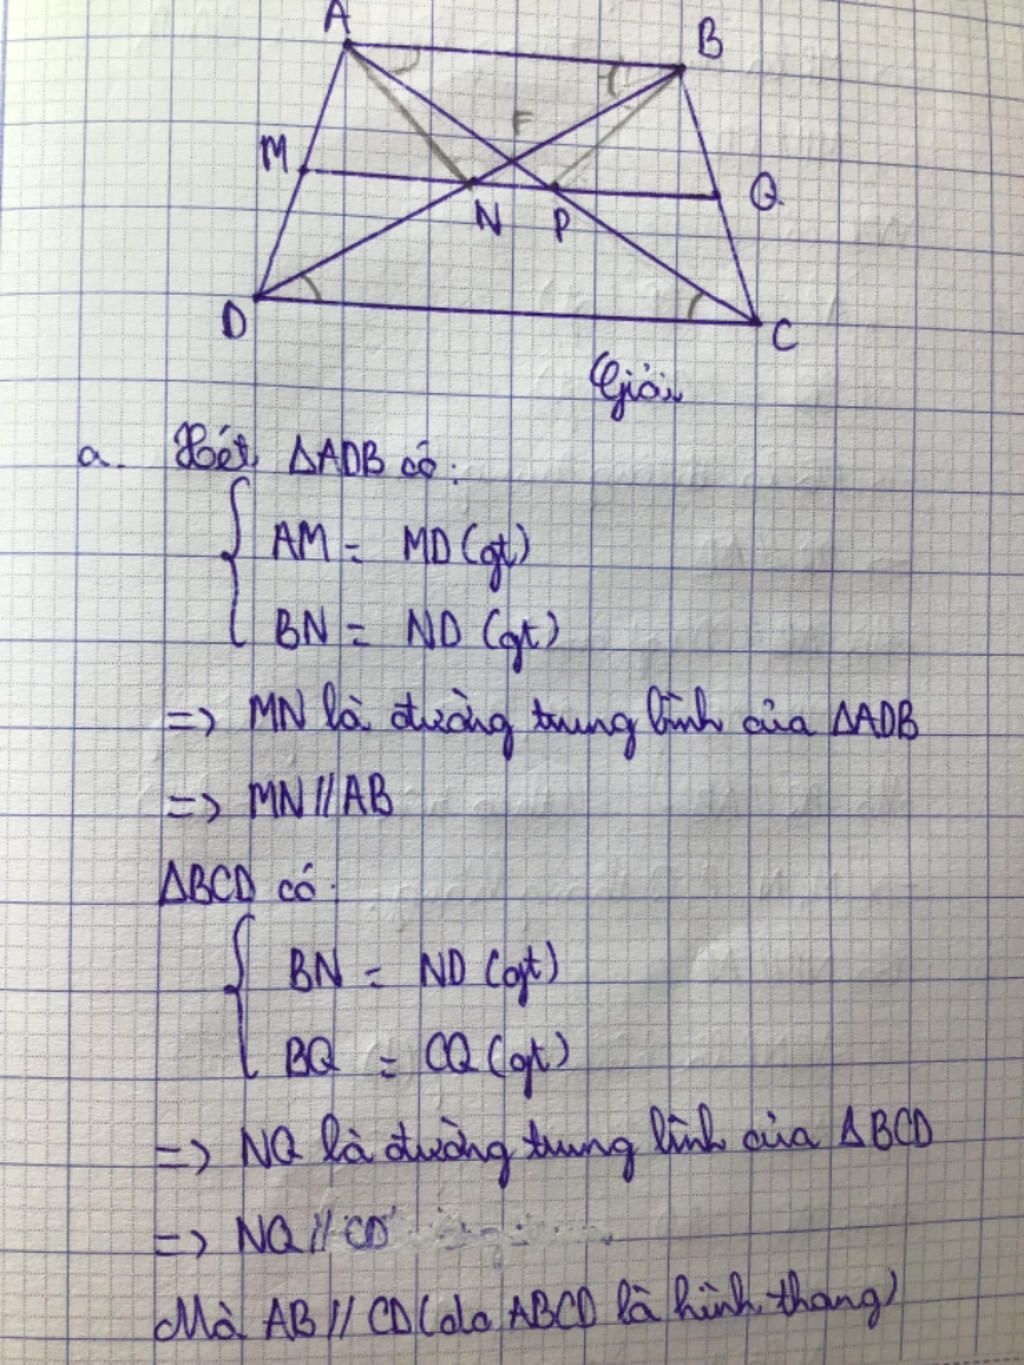 A
B
F
M
Q
N P
D
C
Giải
a. Xét ΔADB có:
AM = MD (gt)
BN = ND (gt)
=> MN là đường trung bình của ΔADB
=> MN // AB
ΔBCD có:
BN = ND (gt)
BQ = CQ (gt)
=> NQ là đường trung bình của ΔBCD
=> NQ // CD
Mà AB // CD (do ABCD là hình thang)